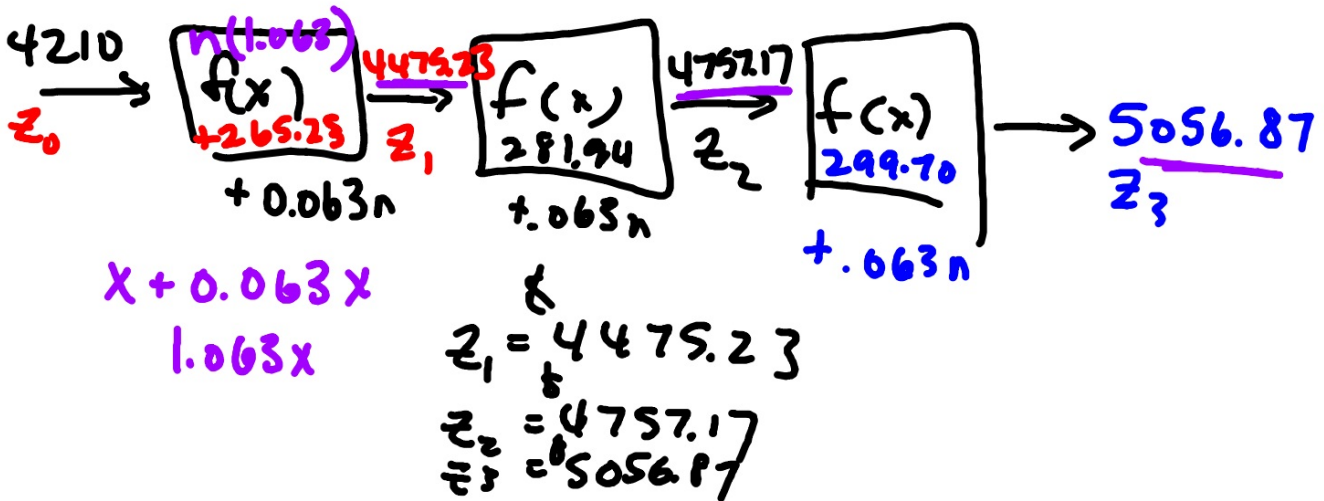 4210
Z₀
n(1.063)
f(x)
+265.23
+ 0.063n
4475.23
Z₁
f(x)
281.94
+.063n
4757.17
Z₂
f(x)
299.70
+.063n
5056.87
Z₃
x + 0.063x
1.063x
Z₁ = 4475.23
Z₂ = 4757.17
Z₃ = 5056.87